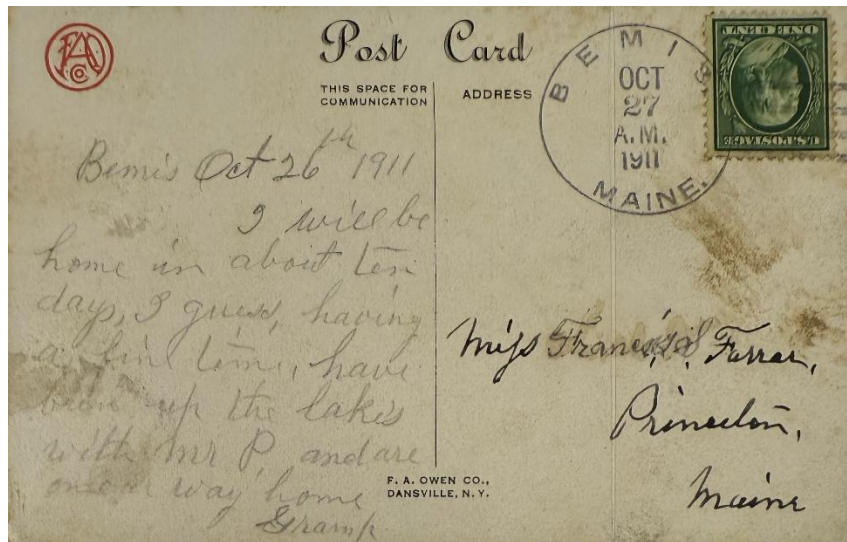 FAO Co
Post Card
THIS SPACE FOR
COMMUNICATION
ADDRESS
BEMIS
OCT
27
A.M.
1911
MAINE.
ONE CENT
U.S. POSTAGE
Bemis Oct 26th 1911
I will be
home in about ten
days, I guess, having
a fine time, have
been up the lakes
with Mr P. and are
on our way home
Gramp
Miss Frances S. Farrar,
Princeton,
Maine
F. A. OWEN CO.,
DANSVILLE, N. Y.